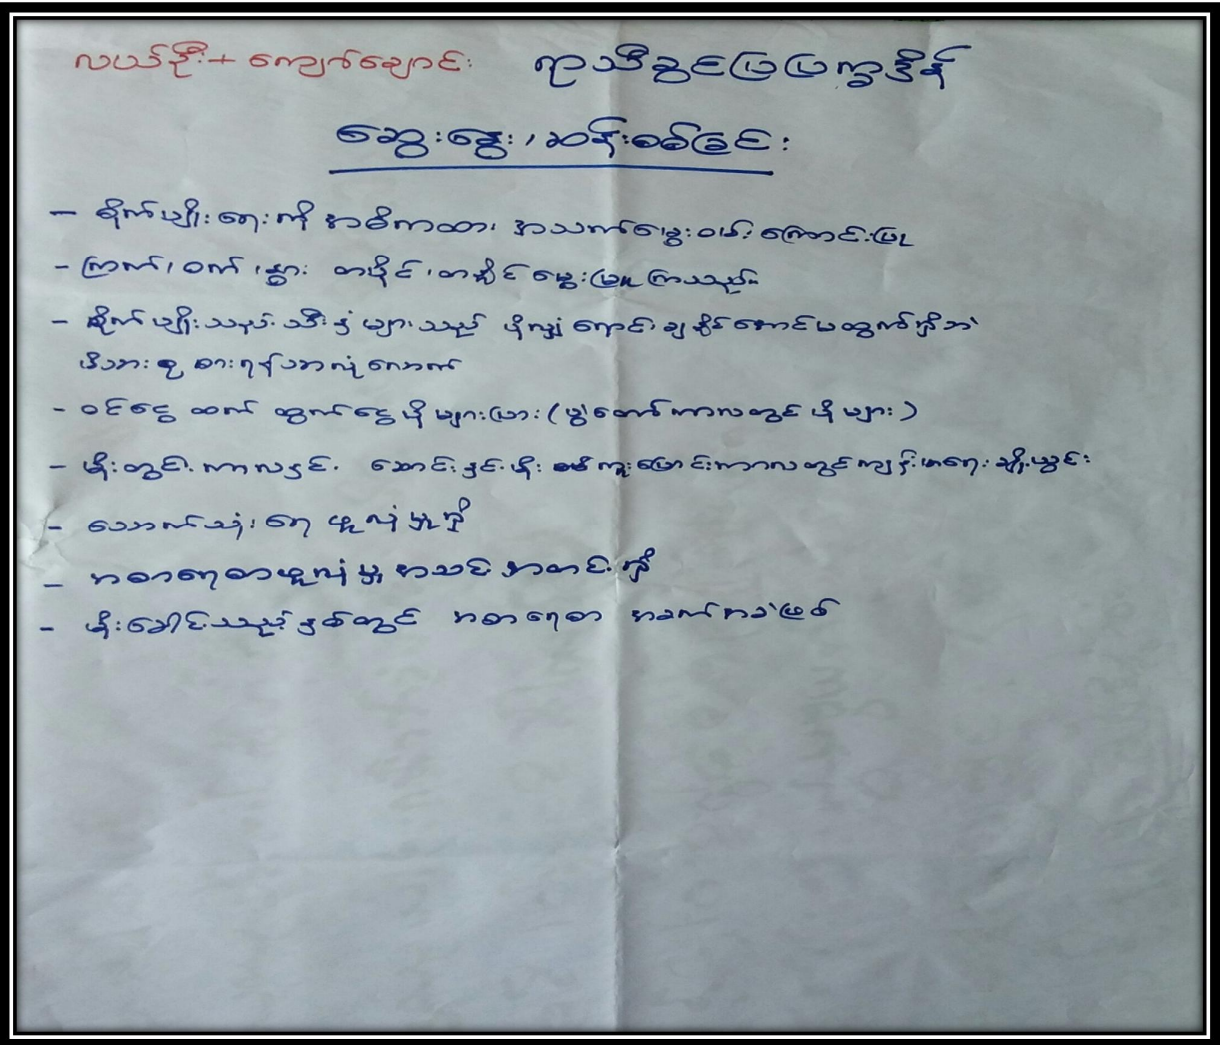 လယ်ဦး + ကျောက်ချောင်း ရာသီခွင်ပြပြက္ခဒိန်
ဆွေးနွေး၊ဆန်းစစ်ခြင်း
- စိုက်ပျိုးရေးကို အဓိကထား အသက်မွေးဝမ်းကြောင်းပြု
- ကြက်၊ဝက်၊နွား တနိုင်၊တပိုင်မွေးမြူကြသည်။
- စိုက်ပျိုးသည့်သီးနှံများသည် ပိုလျှံရောင်းချနိုင်အောင်မထွက်ရှိဘဲ
မိသားစု စားရန်သာလုံလောက်
- ဝင်ငွေ ထက် ထွက်ငွေပိုများပြား (ပွဲတော်ကာလတွင် ပိုများ)
- မိုးတွင်းကာလနှင့် ဆောင်းနှင့်မိုး ကူးပြောင်းကာလတွင်ကျန်းမာရေးချို့ယွင်း
- သောက်သုံးရေ ဖူလုံမှုရှိ
- အစာရေစာဖူလုံမှု အသင့်အတင့်ရှိ
- မိုးခေါင်သည့်နှစ်တွင် အစာရေစာ အခက်အခဲဖြစ်